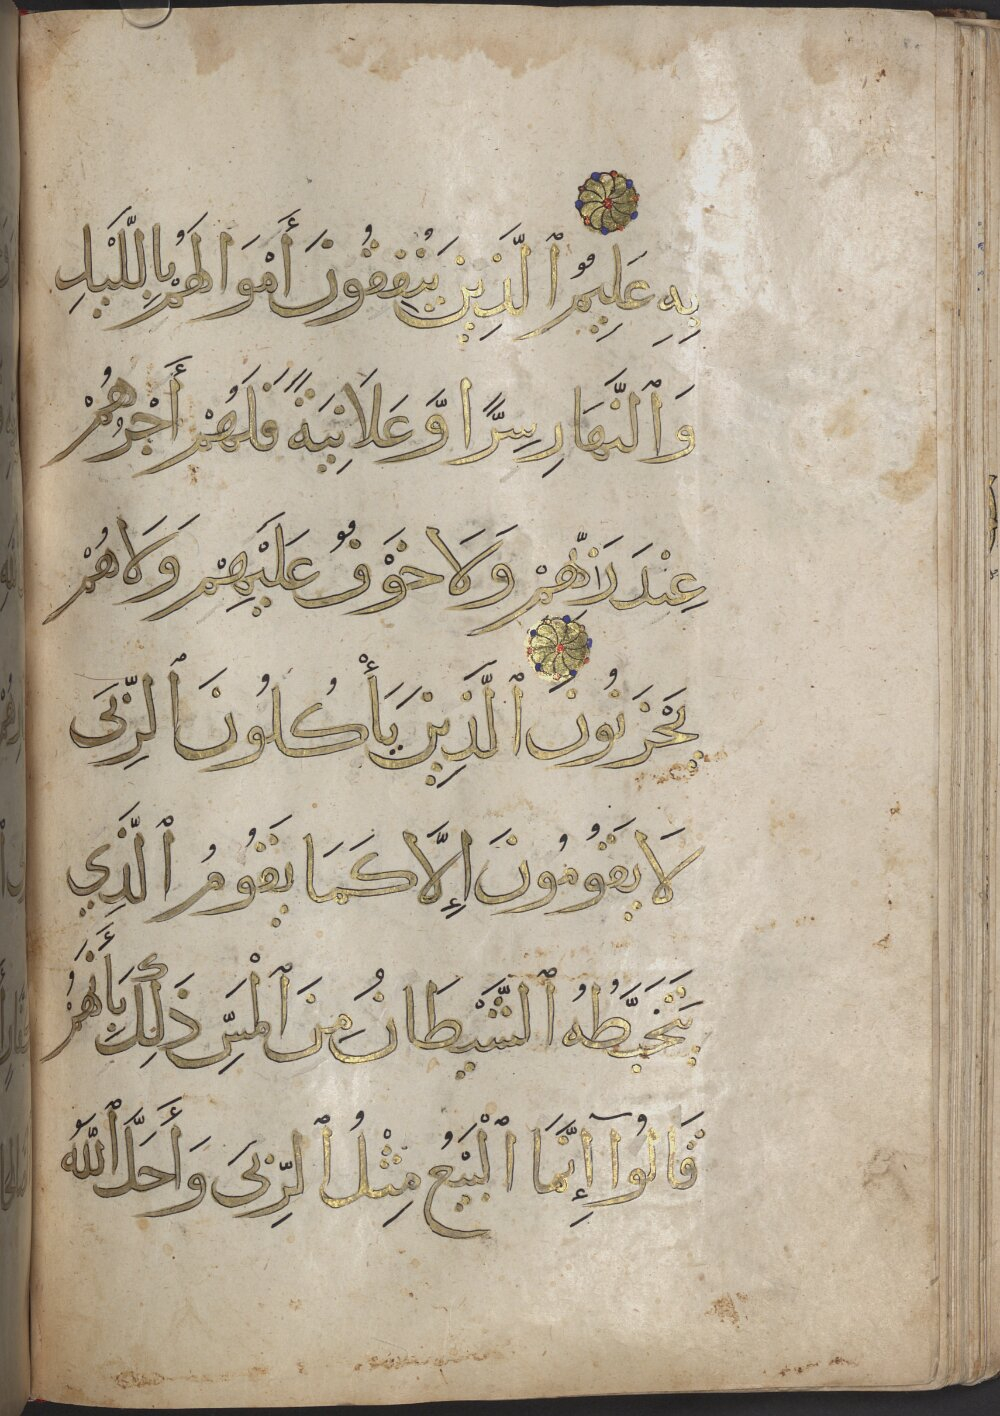 بِهِ عَلِيمٌ ٱلَّذِينَ يُنفِقُونَ أَمْوَالَهُمْ بِاللَّيْلِ
وَٱلنَّهَارِ سِرًّا وَّعَلَانِيَةً فَلَهُمْ أَجْرُهُمْ
عِنْدَ رَبِّهِمْ وَلَا خَوْفٌ عَلَيْهِمْ وَلَا هُمْ
يَحْزَنُونَ ٱلَّذِينَ يَأْكُلُونَ ٱلرِّبَى
لَا يَقُومُونَ إِلَّا كَمَا يَقُومُ ٱلَّذِي
يَتَخَبَّطُهُ ٱلشَّيْطَانُ مِنَ ٱلْمَسِّ ذَلِكَ بِأَنَّهُمْ
قَالُوٓا إِنَّمَا ٱلْبَيْعُ مِثْلُ ٱلرِّبَى وَأَحَلَّ ٱللَّهُ